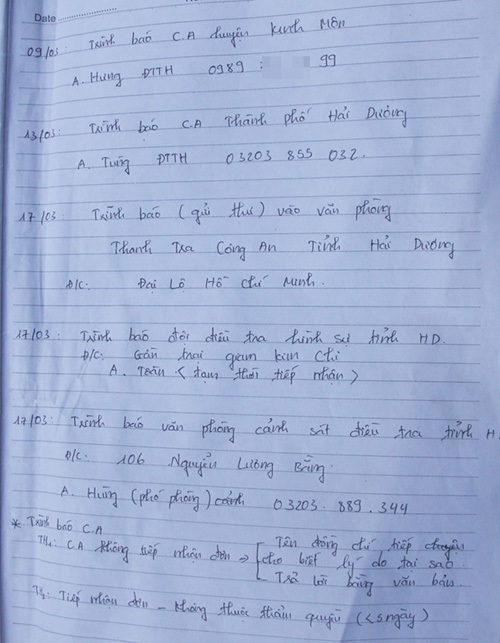 Date
09/03: Trình báo C.A huyện Kinh Môn
A. Hưng ĐTTH 0989 : 99
13/03: Trình báo C.A Thành phố Hải Dương
A. Tưởng ĐTTH 03203 855 032.
17/03: Trình báo (gửi thư) vào văn phòng
Thanh Tra Công An Tỉnh Hải Dương
Đ/C: Đại Lộ Hồ Chí Minh.
17/03: Trình báo đội điều tra hình sự tỉnh HD.
Đ/C: Gần trại giam kim chi
A. Toản < tạm thời tiếp nhận >
17/03: Trình báo văn phòng cảnh sát điều tra tỉnh H.
Đ/C: 106 Nguyễn Lương Bằng
A. Hùng (phó phòng) 03203.889.344
* Trình báo C.A
TH1: C.A không tiếp nhận đơn → Tên đồng chí tiếp
cho biết lý do tại sao
Trả lời bằng văn bản.
Tiếp nhận đơn - không thuộc thẩm quyền (<5 ngày)